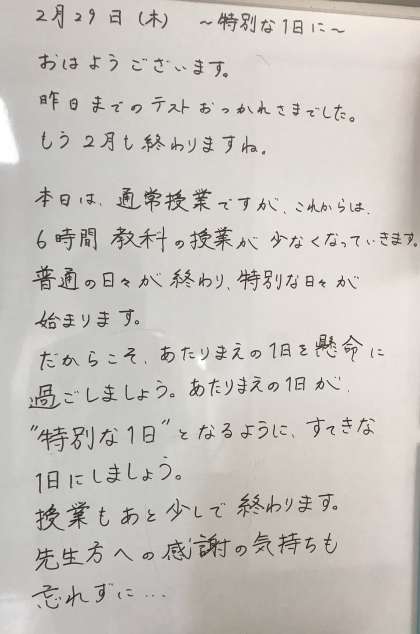 2月29日(木) ～特別な1日に～
おはようございます。
昨日までのテストおつかれさまでした。
もう2月も終わりますね。
本日は、通常授業ですが、これからは、
6時間 教科の授業が少なくなっていきます。
普通の日々が終わり、特別な日々が
始まります。
だからこそ、あたりまえの1日を懸命に
過ごしましょう。あたりまえの1日が、
"特別な1日"となるように、すてきな
1日にしましょう。
授業もあと少しで終わります。
先生方への感謝の気持ちも
忘れずに…